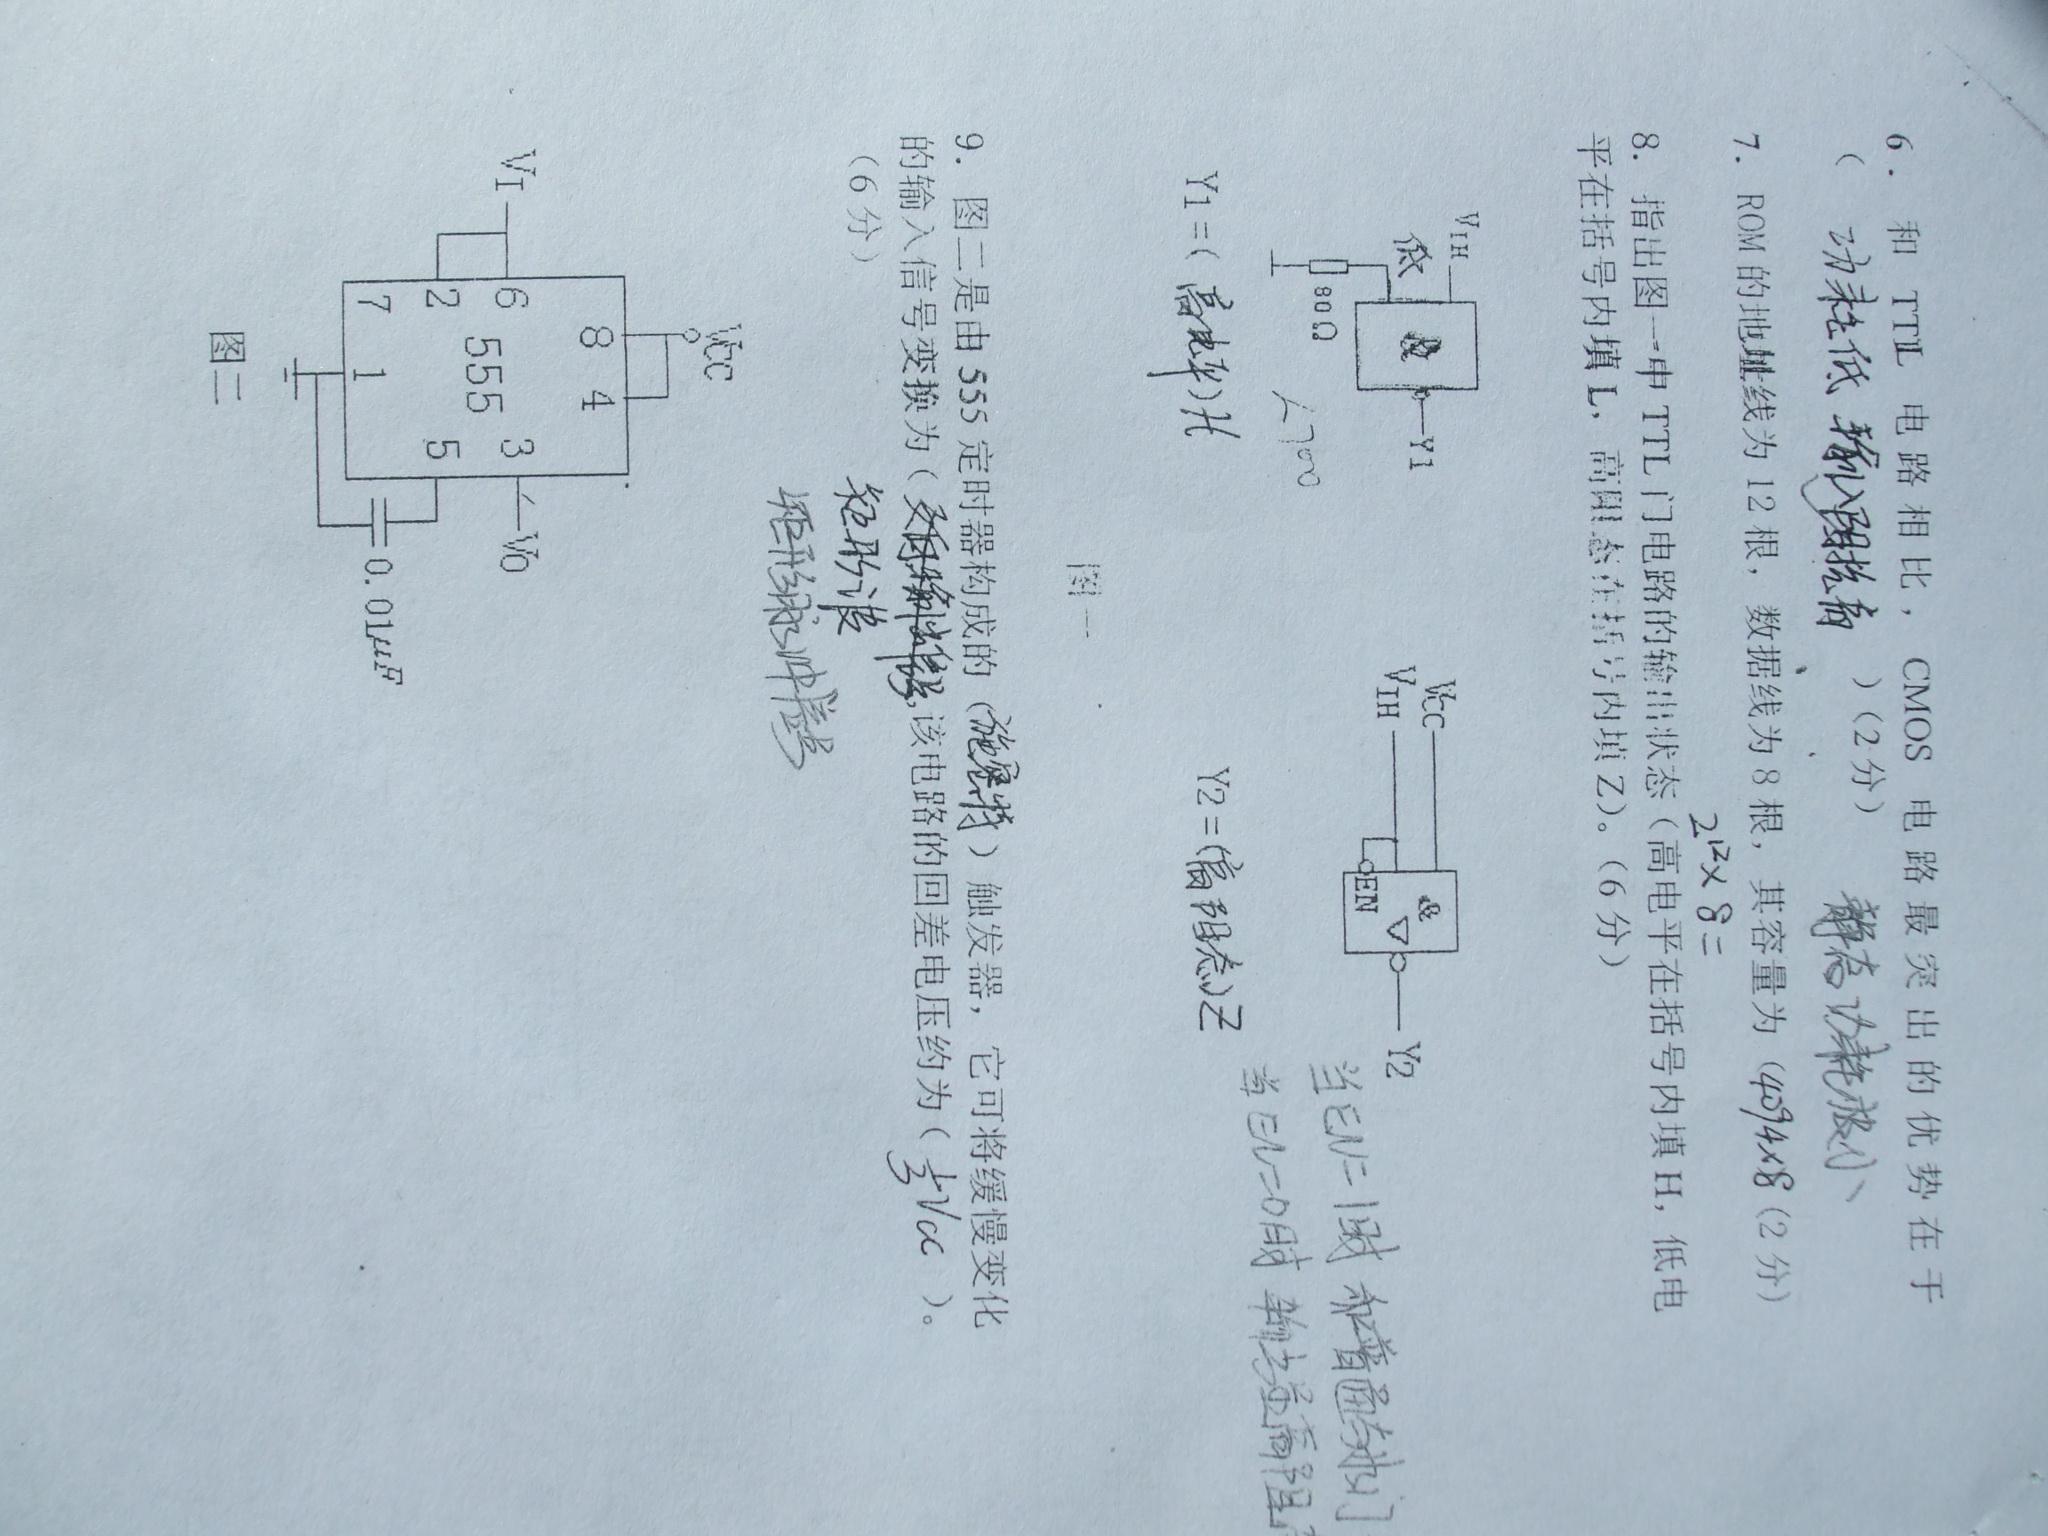 6. 和 TTL 电路相比，CMOS 电路最突出的优势在于
（ 功耗低 输入阻抗高 ）(2分) 静态功耗极小
7. ROM 的地址线为 12 根，数据线为 8 根，其容量为（4094×8 (2分)
2¹²×8=
8. 指出图一中 TTL 门电路的输出状态（高电平在括号内填 H，低电
平在括号内填 L，高阻态在括号内填 Z）。（6 分）
VIH
低
&
Y1
80Ω
<700
VCC
VIH
&
▽
EN
Y2
当EN=1时 和普通与非门
当EN=0时 输出呈高阻
Y1=（高电平）H
Y2=（高阻态）Z
图一
9. 图二是由 555 定时器构成的（施密特）触发器，它可将缓慢变化
的输入信号变换为（ ，该电路的回差电压约为（ 1/3 VCC ）。
（6 分）
矩形波
矩形脉冲信号
VCC
8 4
VI
6
3
VO
555
2
5
7
1
0.01μF
图二